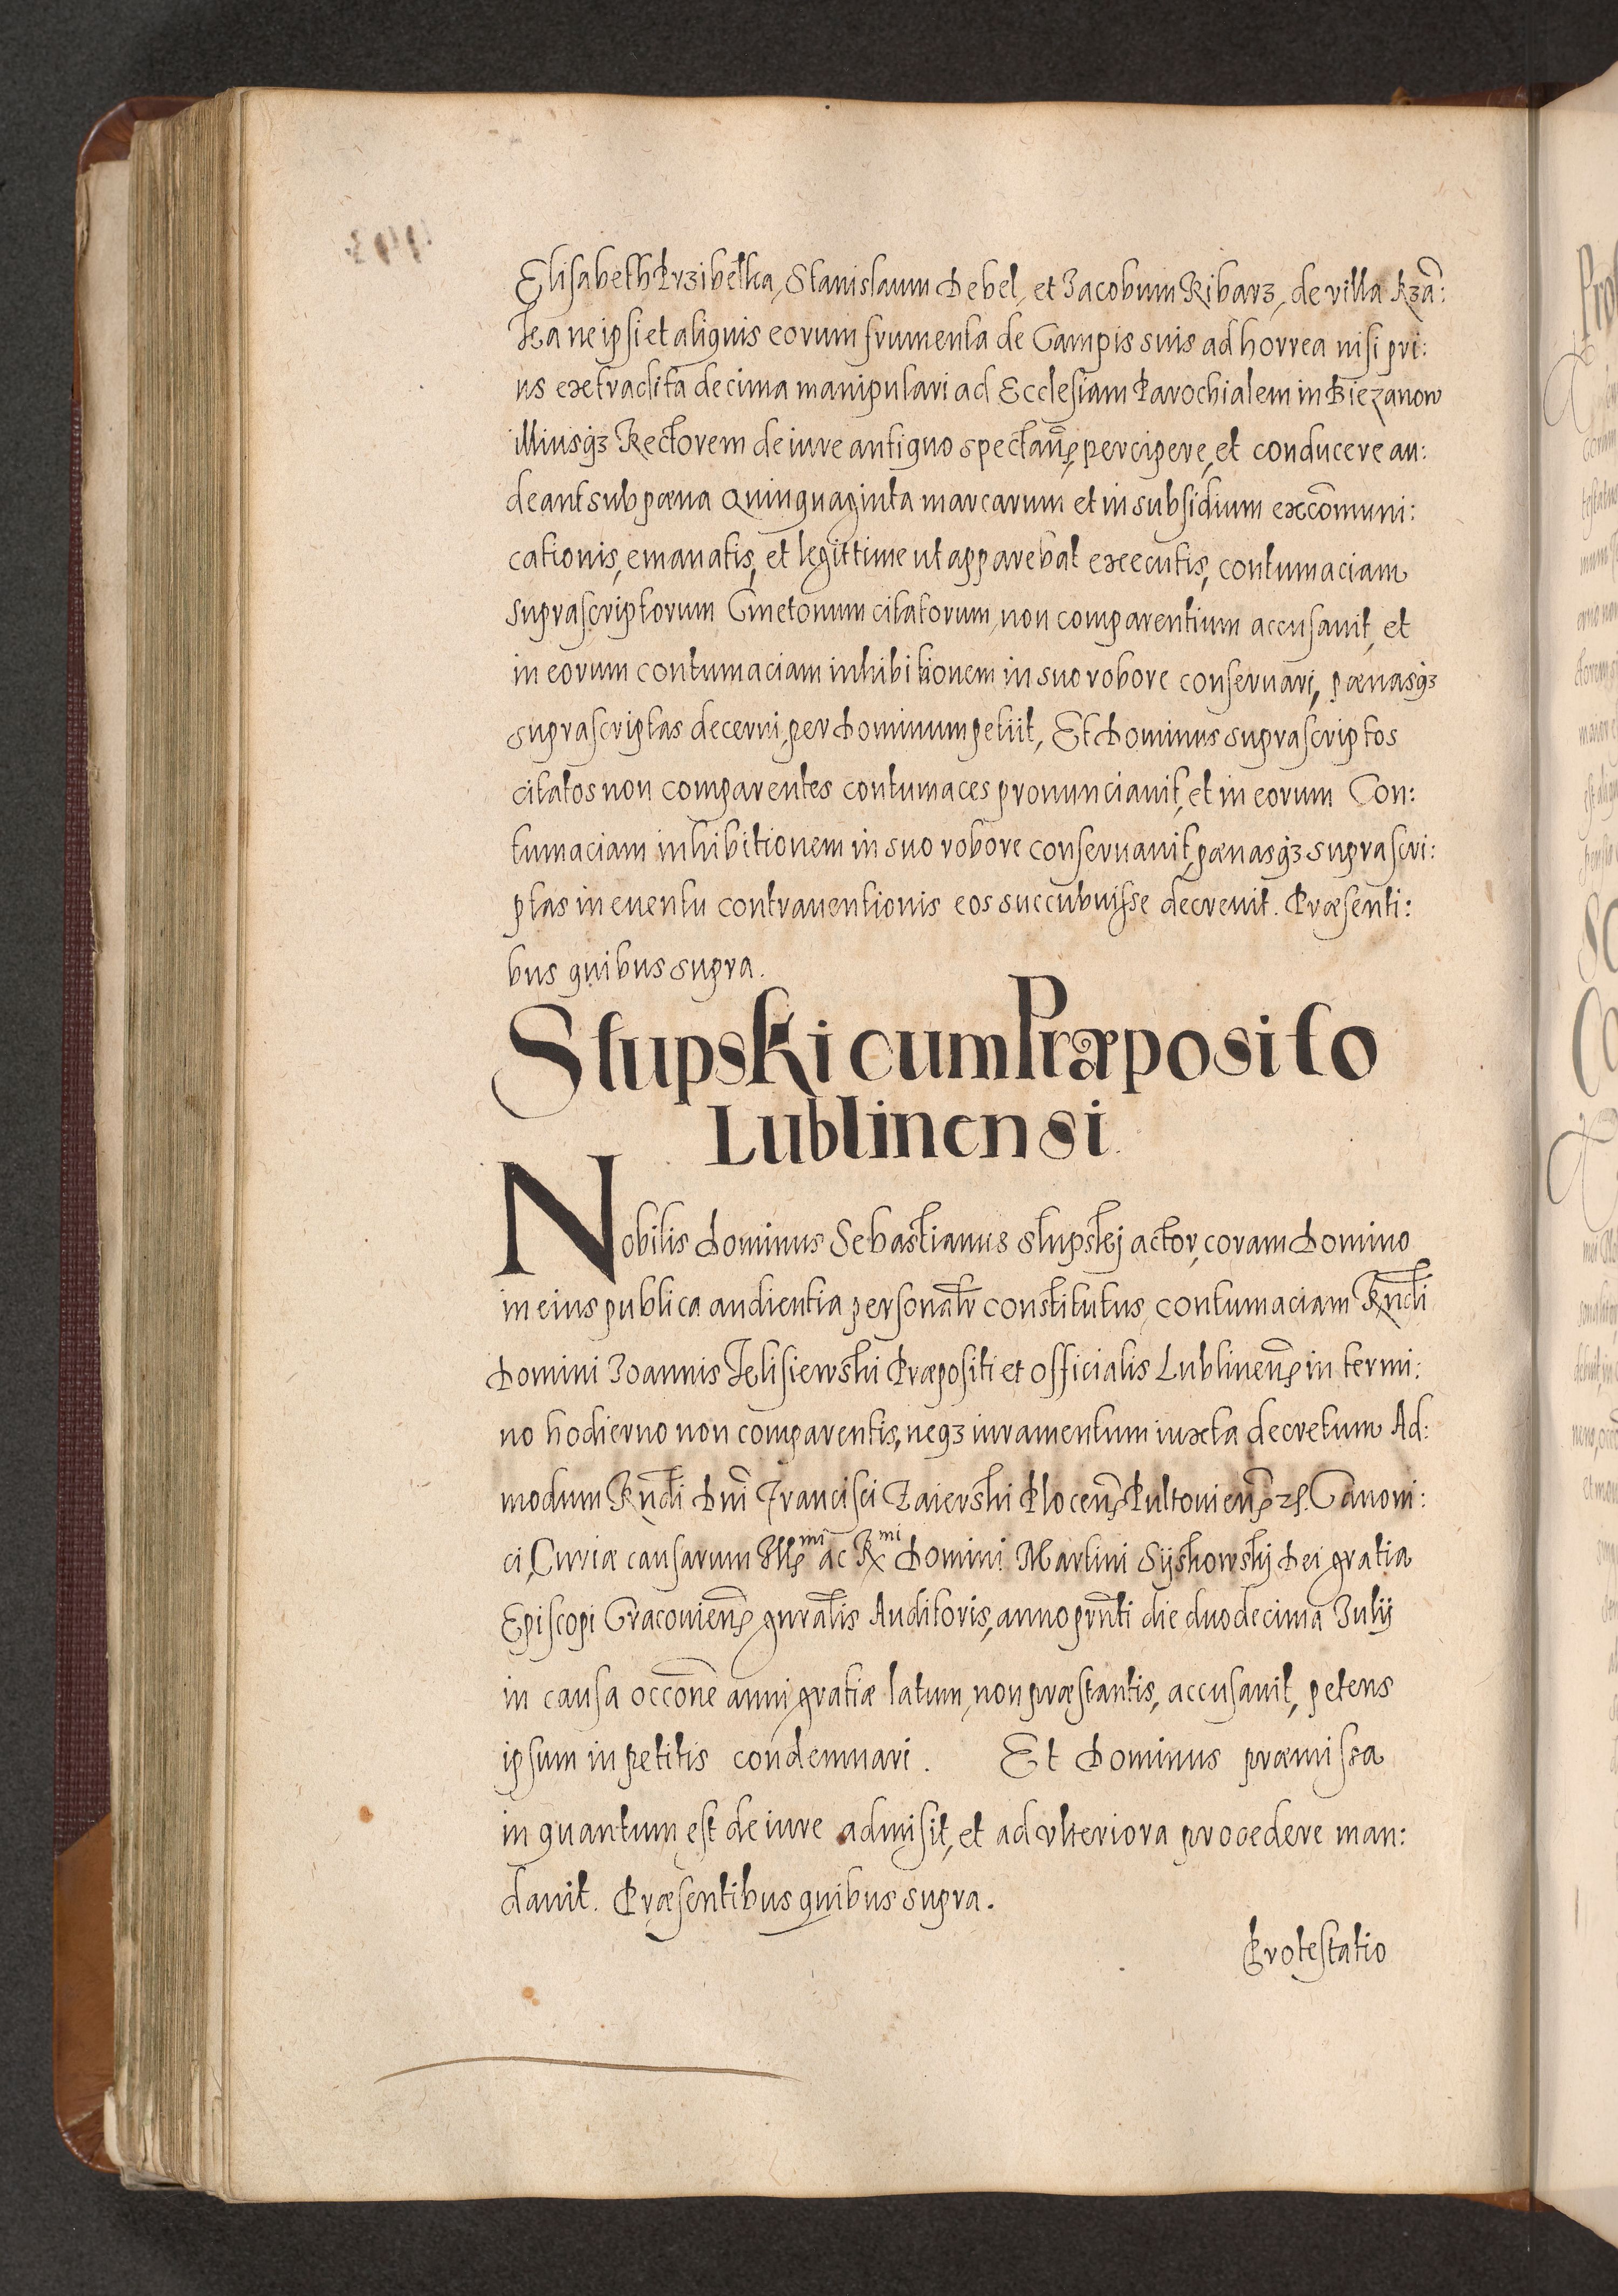 Elisabeth Przibelka, Stanislaum Debel, et Jacobum Ribarz, de villa Rzą:
ka ne ipsi et aliquis eorum frumenta de Campis suis ad horrea nisi pri:
us extradita decima manipulari ad Ecclesiam Parochialem in Biezanow
illiusq3 Rectorem de iure antiquo spectan̄ percipere, et conducere au:
deant sub pœna Quinquaginta marcarum et in subsidium excōmuni:
cationis, emanatis, et legittime ut apparebat executis, contumaciam
suprascriptorum Cmetonum citatorum, non comparentium accusauit, et
in eorum contumaciam inhibitionem in suo robore conseruari, pœnasq3
suprascriptas decerni, per Dominum petiit, Et Dominus suprascriptos
citatos non comparentes contumaces pronunciauit, et in eorum Con:
tumaciam inhibitionem in suo robore conseruauit, pœnasq3 suprascri:
ptas in euentu contrauentionis eos succubuisse decreuit. Præsenti:
bus quibus supra.
Stupski cum Præposito
Lublinensi.
Nobilis Dominus Sebastianus Stupskij actor, coram Domino
in eius publica audientia personalr̄ constitutus, contumaciam Rn̄di
Domini Joannis Jelisiewski Præpositi et Officialis Lublinen̄ in termi:
no hodierno non comparentis, neq3 iuramentum iuxta decretum Ad:
modum Rn̄di Dn̄i Francisci Zaierski Plocen̄ Pultouien̄ etc. Canoni:
ci, Curiæ causarum Illmi ac Rmi Domini Martini Syskowskij Dei gratia
Episcopi Cracouien̄ gn̄ralis Auditoris, anno prn̄ti die duodecima Julij
in causa occōne anni gratiæ latum, non præstantis, accusauit, petens
ipsum in petitis condemnari. Et Dominus præmissa
in quantum est de iure admisit, et ad vlteriora procedere man:
dauit. Præsentibus quibus supra.
Protestatio